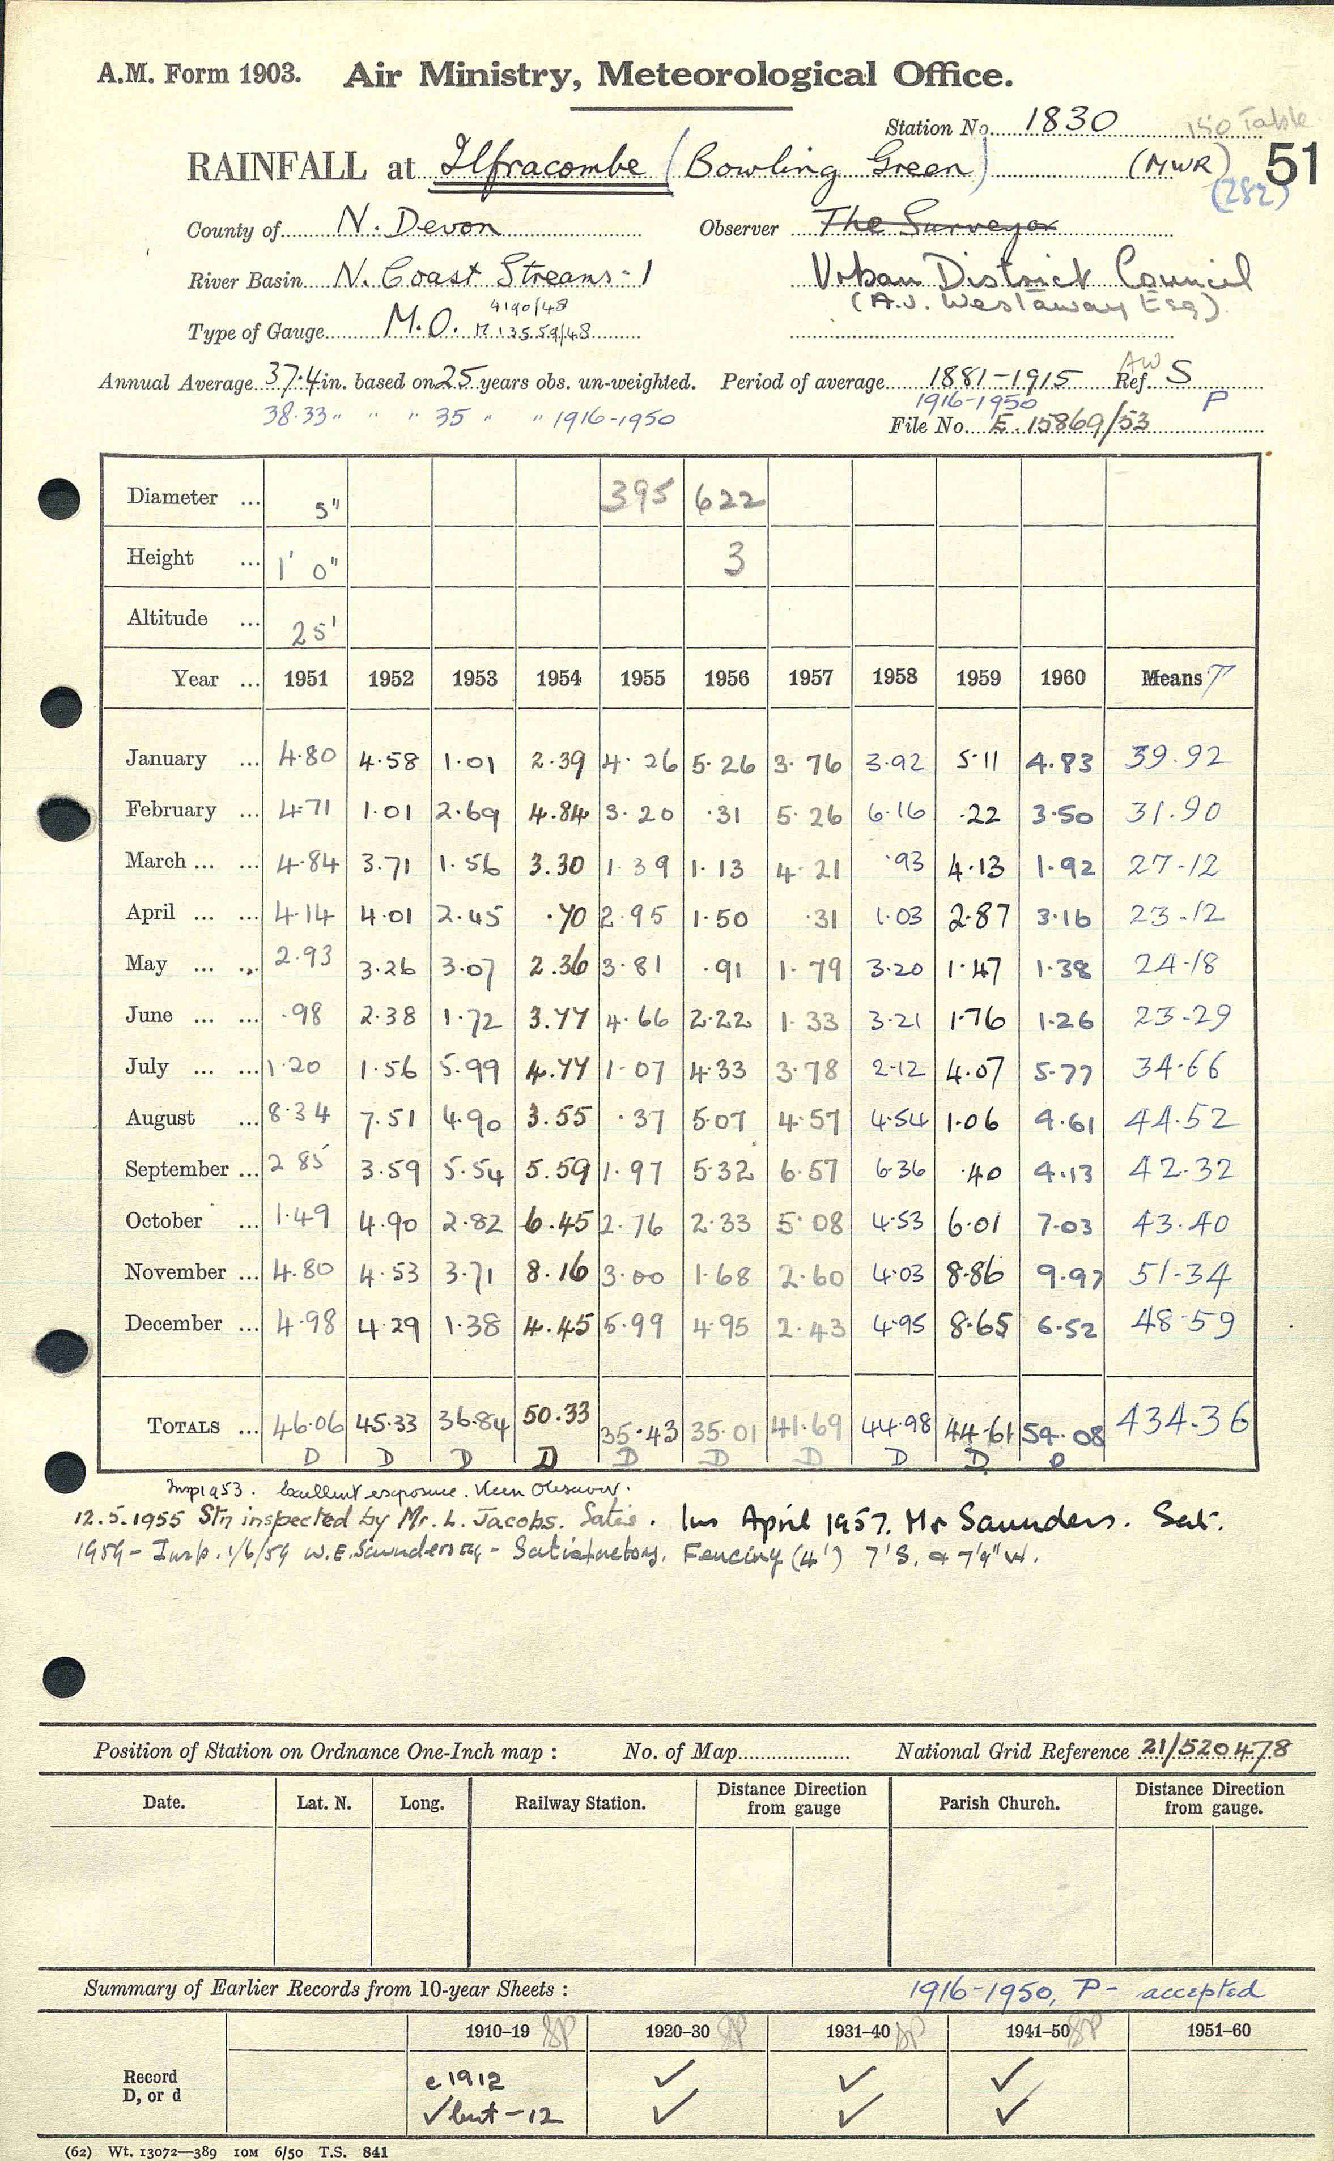 A.M. Form 1903. Air Ministry, Meteorological Office.
Station No. 1830 150 Table
RAINFALL at Ilfracombe (Bowling Green) (MWR) 51
(282)
County of N. Devon Observer The Surveyor
River Basin N. Coast Streams - 1 Urban District Council
4190/48 (A.J. Westaway Esq).
Type of Gauge M.O. M 13559/48
Annual Average 37.4 in. based on 25 years obs. un-weighted. Period of average 1881-1915 AW Ref. S
38.33 " " " 35 " " 1916-1950 1916-1950 P
File No. E. 15869/53
Diameter ... 5" 395 622
Height ... 1' 0" 3
Altitude ... 25'
Year ... 1951 1952 1953 1954 1955 1956 1957 1958 1959 1960 Means T
January ... 4.80 4.58 1.01 2.39 4.26 5.26 3.76 3.92 5.11 4.83 39.92
February ... 4.71 1.01 2.69 4.84 3.20 .31 5.26 6.16 .22 3.50 31.90
March ... ... 4.84 3.71 1.56 3.30 1.39 1.13 4.21 .93 4.13 1.92 27.12
April ... ... 4.14 4.01 2.45 .70 2.95 1.50 .31 1.03 2.87 3.16 23.12
May ... ... 2.93 3.26 3.07 2.36 3.81 .91 1.79 3.20 1.47 1.38 24.18
June ... ... .98 2.38 1.72 3.77 4.66 2.22 1.33 3.21 1.76 1.26 23.29
July ... ... 1.20 1.56 5.99 4.77 1.07 4.33 3.78 2.12 4.07 5.77 34.66
August ... 8.34 7.51 4.90 3.55 .37 5.07 4.57 4.54 1.06 4.61 44.52
September ... 2.85 3.59 5.54 5.59 1.97 5.32 6.57 6.36 .40 4.13 42.32
October ... 1.49 4.90 2.82 6.45 2.76 2.33 5.08 4.53 6.01 7.03 43.40
November ... 4.80 4.53 3.71 8.16 3.00 1.68 2.60 4.03 8.86 9.97 51.34
December ... 4.98 4.29 1.38 4.45 5.99 4.95 2.43 4.95 8.65 6.52 48.59
TOTALS ... 46.06 45.33 36.84 50.33 35.43 35.01 41.69 44.98 44.61 54.08 434.36
D D D D D D D D D D
Insp 1953. Excellent exposure. Keen Observer.
12.5.1955 Stn inspected by Mr. L. Jacobs. Satis. Ins April 1957. Mr Saunders. Sat.
1959 - Insp. 1/6/59 W.E. Saunders - Satisfactory. Fencing (4') 7'S, & 7'9" W.
Position of Station on Ordnance One-Inch map : No. of Map National Grid Reference 21/520478
Date. Lat. N. Long. Railway Station. Distance Direction from gauge Parish Church. Distance Direction from gauge.
Summary of Earlier Records from 10-year Sheets : 1916-1950, P - accepted
1910-19 SP 1920-30 SP 1931-40 SP 1941-50 SP 1951-60
Record D, or d c 1912 ✓ ✓ ✓
✓ but -12 ✓ ✓ ✓
(62) Wt. 13072—389 10M 6/50 T.S. 841